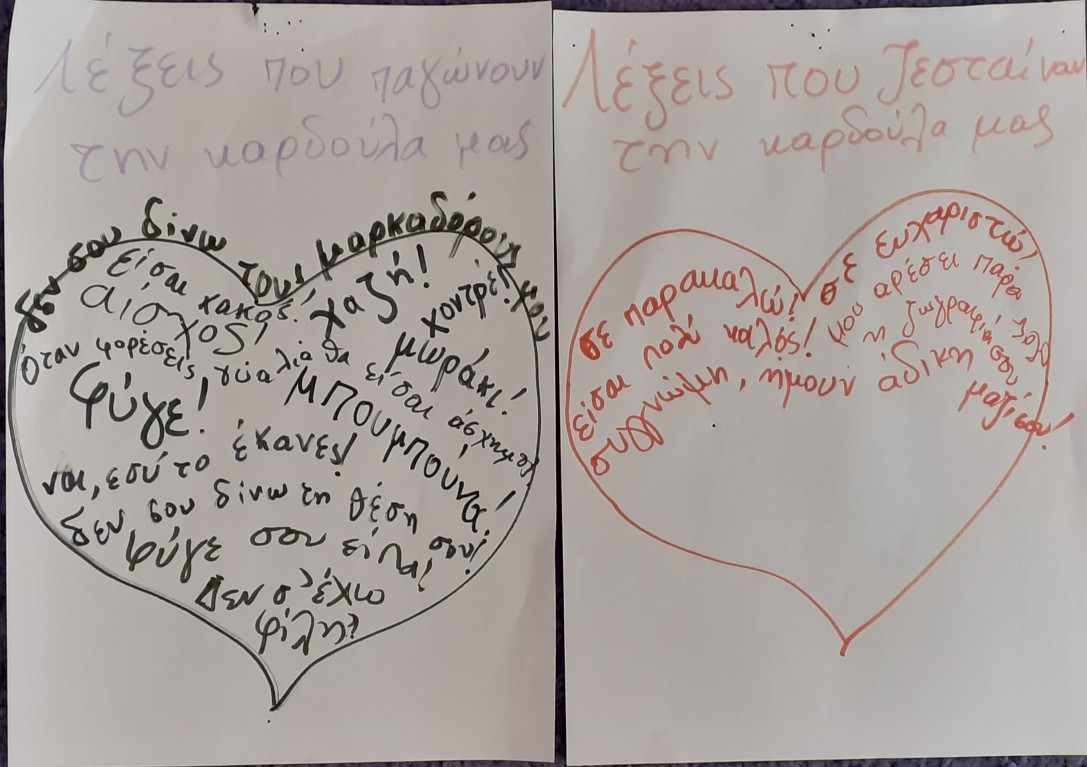 Λέξεις που παγώνουν
την καρδούλα μας
δεν σου δίνω τους μαρκαδόρους μου
είσαι κακός!
αίσχος!
χαζή!
χοντρέ!
μωράκι!
όταν φορέσεις γυαλιά θα είσαι άσχημη!
φύγε!
μπουμπούνα!
ναι, εσύ το έκανες!
Δεν σου δίνω τη θέση σου!
φύγε σου είπα!
Δεν σ' έχω
φίλη!
Λέξεις που ζεσταίνουν
την καρδούλα μας
σε παρακαλώ!
σε ευχαριστώ!
είσαι πολύ καλός!
μου αρέσει πάρα πολύ
η ζωγραφιά σου
συγγνώμη, ήμουν άδικη μαζί σου!